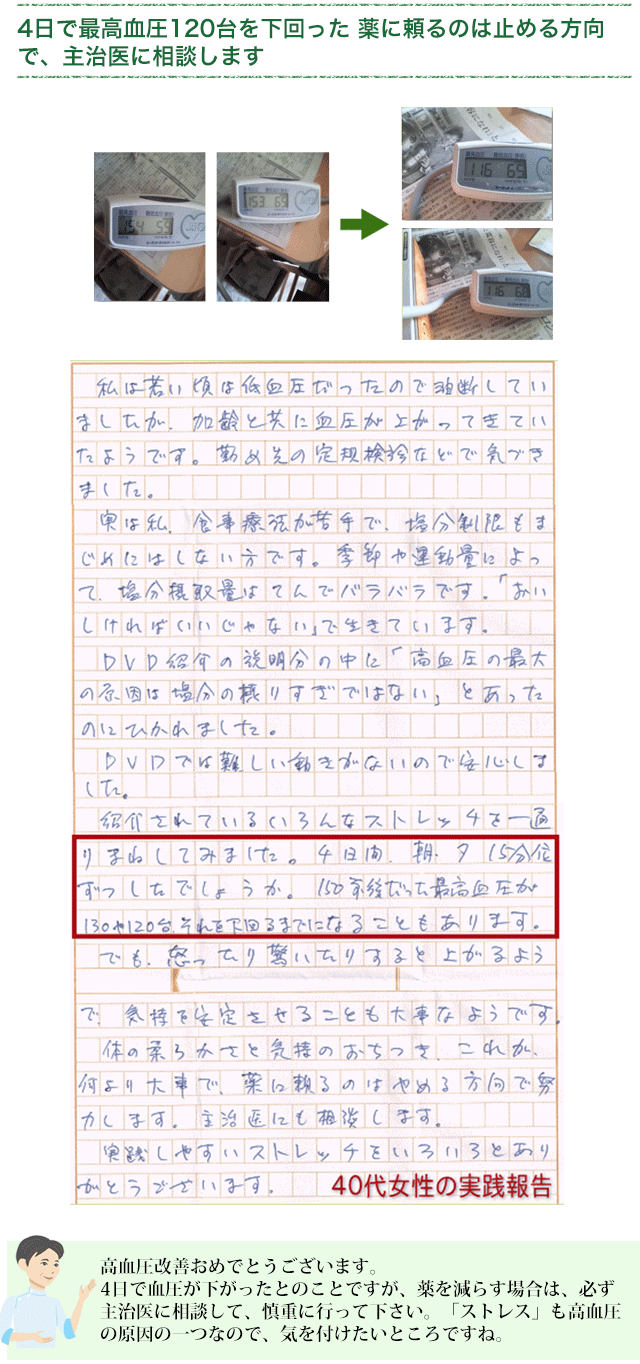 4日で最高血圧120台を下回った 薬に頼るのは止める方向
で、主治医に相談します
154 59
153 69
116 69
116 68
私は若い頃は低血圧だったので油断してい
ましたが、加齢と共に血圧が上がってきてい
たようです。勤め先の定期検診などで気づき
ました。
実は私、食事療法が苦手で、塩分制限もま
じめにはしない方です。季節や運動量によっ
て、塩分摂取量はてんでバラバラです。「おい
しければいいじゃない」で生きています。
DVD紹介の説明分の中に「高血圧の最大
の原因は塩分の摂りすぎではない」とあった
のにひかれました。
DVDでは難しい動きがないので安心しま
した。
紹介されているいろんなストレッチを一通
りまねしてみました。4日間、朝・夕15分位
ずつしたでしょうか。150前後だった最高血圧が
130や120台、それを下回るまでになることもあります。
でも、怒ったり驚いたりすると上がるよう
で、気持を安定させることも大事なようです。
体の柔らかさと気持のおちつき、これが、
何より大事で、薬に頼るのはやめる方向で努
力します。主治医にも相談します。
実践しやすいストレッチをいろいろとあり
がとうございます。
40代女性の実践報告
高血圧改善おめでとうございます。
4日で血圧が下がったとのことですが、薬を減らす場合は、必ず
主治医に相談して、慎重に行って下さい。「ストレス」も高血圧
の原因の一つなので、気を付けたいところですね。